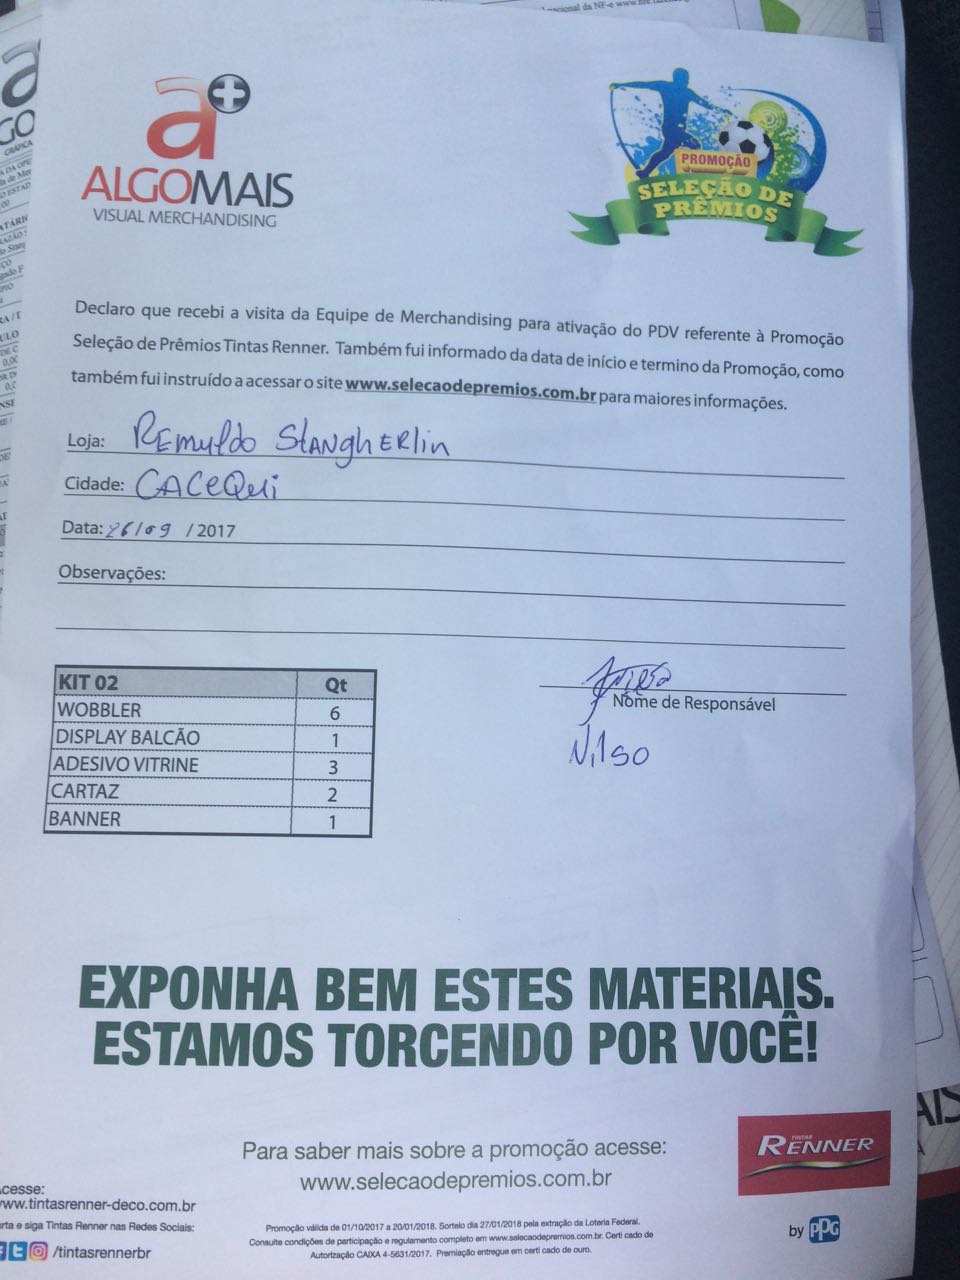 a+
ALGOMAIS
VISUAL MERCHANDISING
PROMOÇÃO
SELEÇÃO DE
PRÊMIOS
Declaro que recebi a visita da Equipe de Merchandising para ativação do PDV referente à Promoção
Seleção de Prêmios Tintas Renner. Também fui informado da data de início e termino da Promoção, como
também fui instruído a acessar o site www.selecaodepremios.com.br para maiores informações.
Loja: Remuldo Stangherlin
Cidade: CACEQui
Data: 26/09 / 2017
Observações:
KIT 02 Qt
WOBBLER 6
DISPLAY BALCÃO 1
ADESIVO VITRINE 3
CARTAZ 2
BANNER 1
Nome de Responsável
Nilso
EXPONHA BEM ESTES MATERIAIS.
ESTAMOS TORCENDO POR VOCÊ!
Para saber mais sobre a promoção acesse:
www.selecaodepremios.com.br
TINTAS
RENNER
by PPG
cesse:
ww.tintasrenner-deco.com.br
rta e siga Tintas Renner nas Redes Sociais:
/tintasrennerbr
Promoção válida de 01/10/2017 a 20/01/2018. Sorteio dia 27/01/2018 pela extração da Loteria Federal.
Consulte condições de participação e regulamento completo em www.selecaodepremios.com.br. Certi cado de
Autorização CAIXA 4-5631/2017. Premiação entregue em certi cado de ouro.